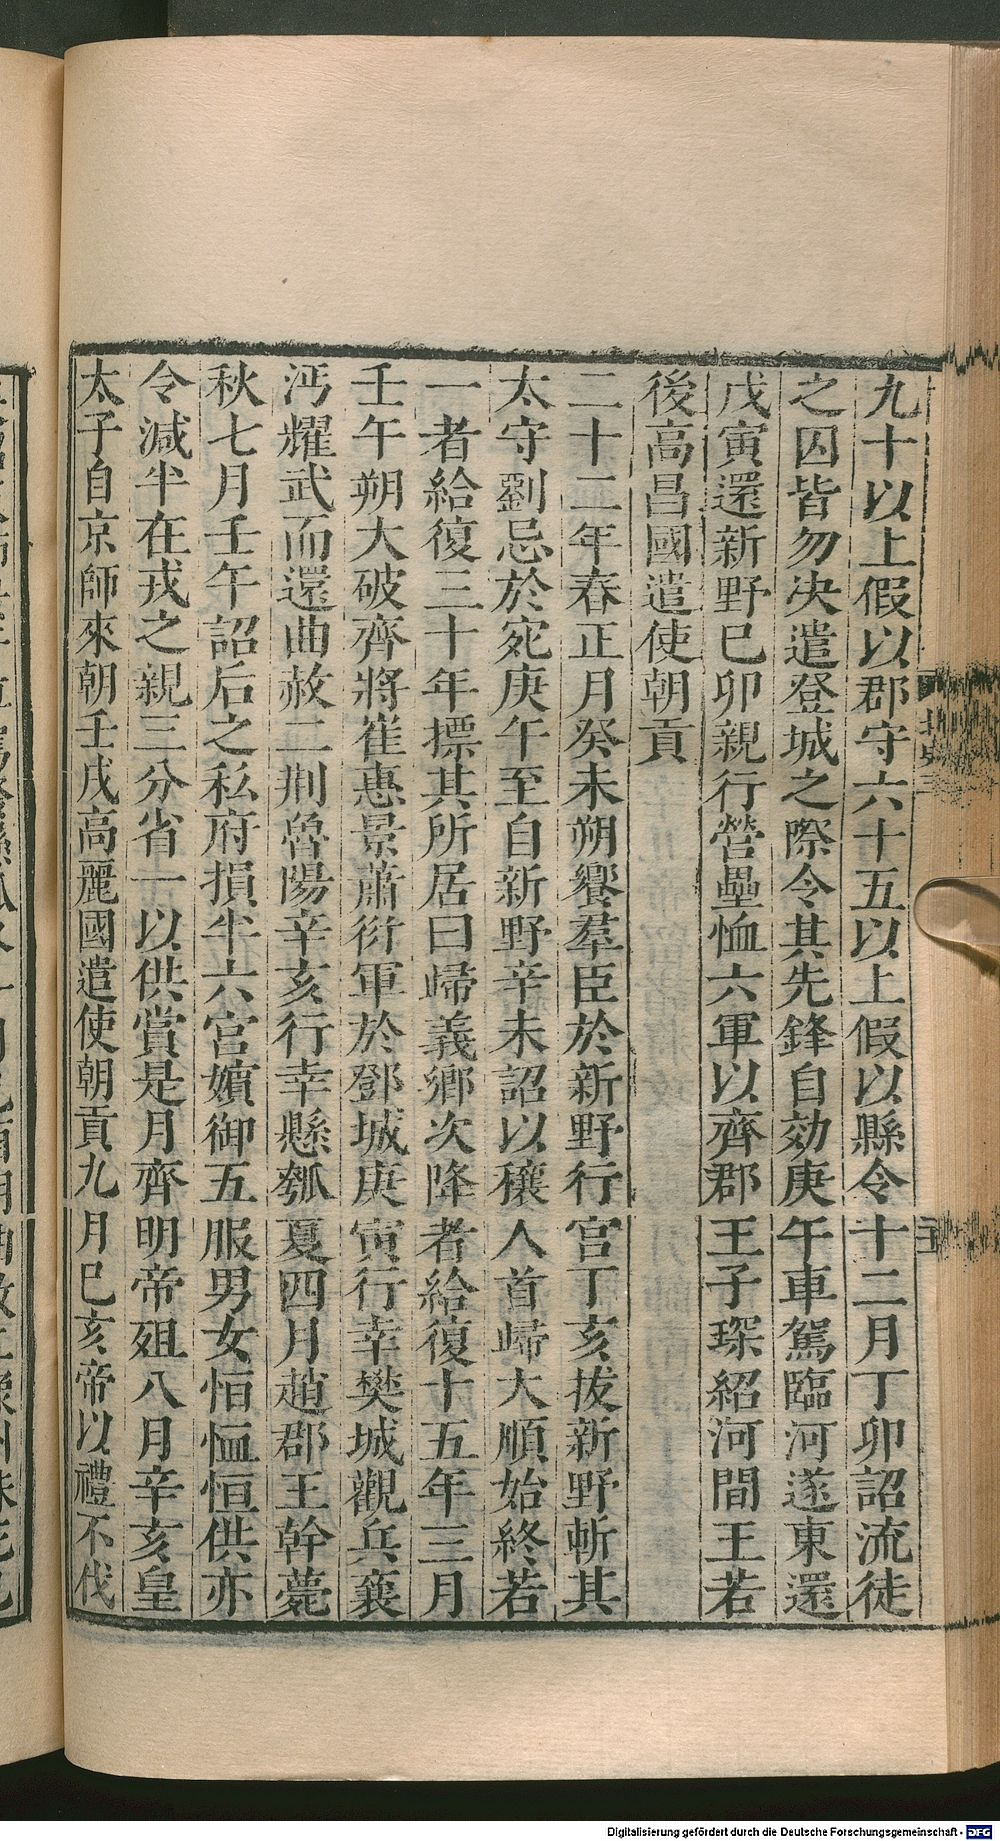 九十以上假以郡守六十五以上假以縣令十二月丁卯詔流徒
之囚皆勿决遣登城之際令其先鋒自効庚午車駕臨河遂東還
戊寅還新野巳卯親行營壘恤六軍以齊郡王子琛紹河間王若
後高昌國遣使朝貢
二十二年春正月癸未朔饗羣臣於新野行宫丁亥拔新野斬其
太守劉忌於宛庚午至自新野辛未詔以穰人首歸大順始終若
一者給復三十年摽其所居曰歸義鄉次降者給復十五年三月
壬午朔大破齊將崔惠景蕭衍軍於鄧城庚寅行幸樊城觀兵襄
沔耀武而還曲赦二荆魯陽辛亥行幸懸瓠夏四月趙郡王幹薨
秋七月壬午詔后之私府損半六宫嬪御五服男女恒恤恒供亦
令減半在戎之親三分省一以供賞是月齊明帝殂八月辛亥皇
太子自京師來朝壬戌高麗國遣使朝貢九月巳亥帝以禮不伐
Digitalisierung gefördert durch die Deutsche Forschungsgemeinschaft - DFG